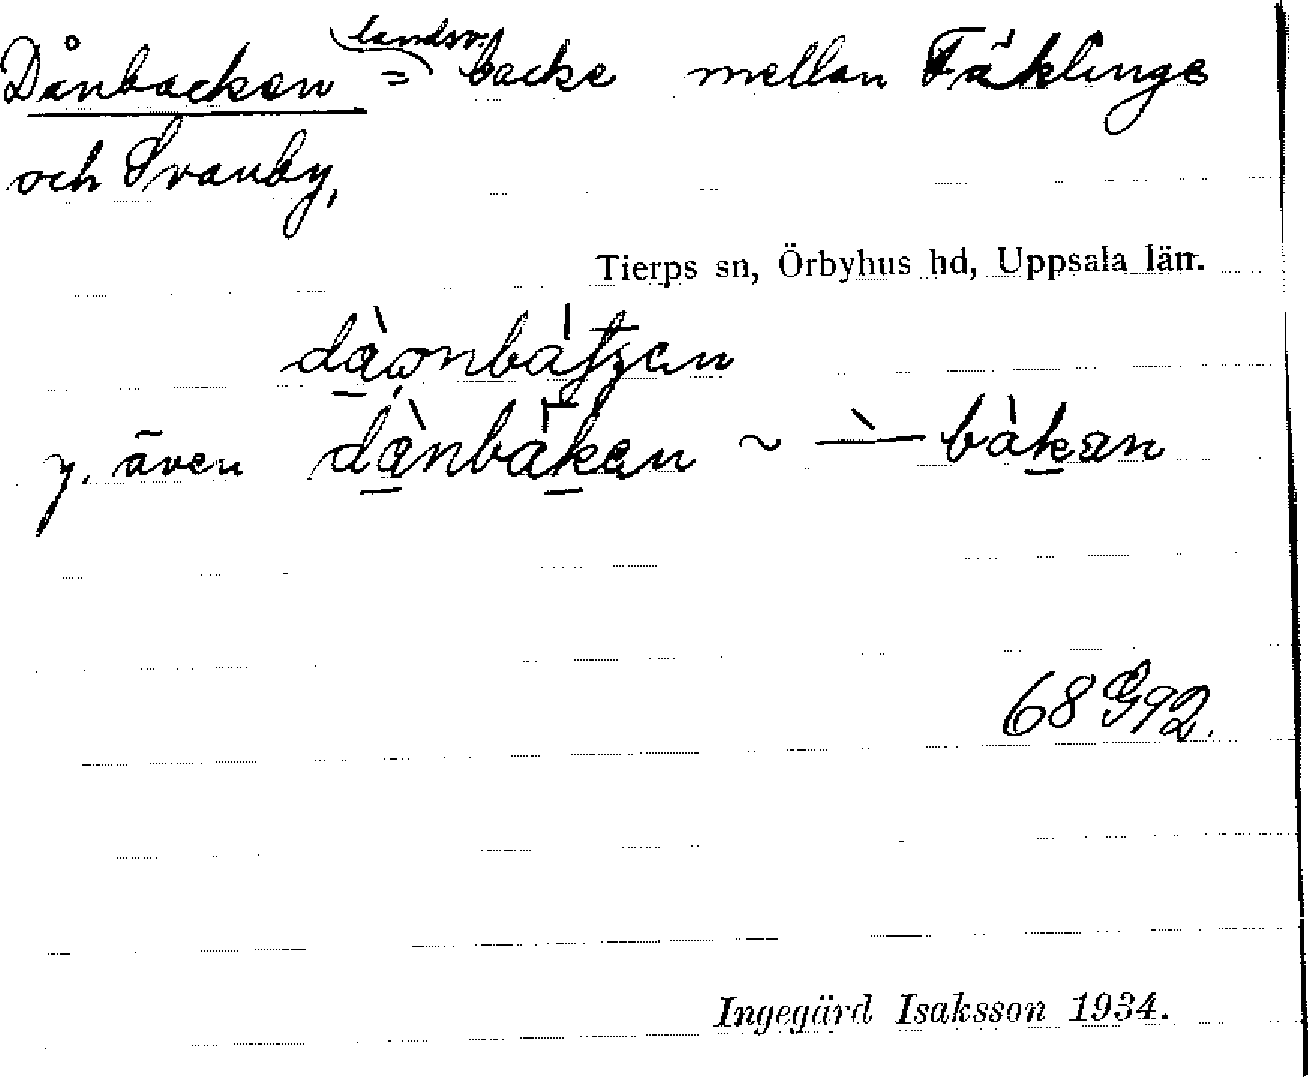 Dånbacken = landsv. backe mellan Fäklinge
och Svanby,
Tierps sn, Örbyhus hd, Uppsala län.
y. även dànbàken ~ –̀ bàkan
68 G92.
Ingegärd Isaksson 1934.